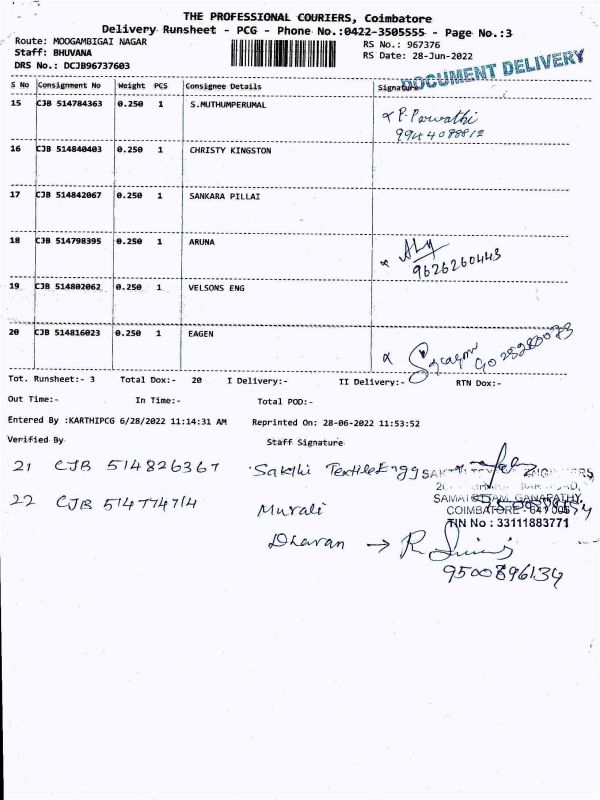 THE PROFESSIONAL COURIERS, Coimbatore
Delivery Runsheet - PCG - Phone No.:0422-3505555 - Page No.:3
Route: MOOGAMBIGAI NAGAR RS No.: 967376
Staff: BHUVANA RS Date: 28-Jun-2022
DRS No.: DCJB96737603
DOCUMENT DELIVERY
S No Consignment No Weight PCS Consignee Details Signature
15 CJB 514784363 0.250 1 S.MUTHUMPERUMAL P. Parvathi
9944088812
16 CJB 514840403 0.250 1 CHRISTY KINGSTON
17 CJB 514842067 0.250 1 SANKARA PILLAI
18 CJB 514798395 0.250 1 ARUNA
9626260443
19 CJB 514802062 0.250 1 VELSONS ENG
20 CJB 514816023 0.250 1 EAGEN
Tot. Runsheet:- 3 Total Dox:- 20 I Delivery:- II Delivery:- RTN Dox:-
Out Time:- In Time:- Total POD:-
Entered By :KARTHIPCG 6/28/2022 11:14:31 AM Reprinted On: 28-06-2022 11:53:52
Verified By Staff Signature
21 CJB 514826367 Sakthi Textile Engg
22 CJB 514774714 Murali
SAMAI GANAPATHY,
COIMBATORE - 641 006
TIN No : 33111883771
Dharan →
9500896134